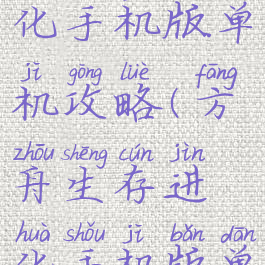 化手机版单
jī gōng lüè fāng
机攻略(方
zhōu shēng cún jìn
舟生存进
huà shǒu jī bǎn dān
化手机版单